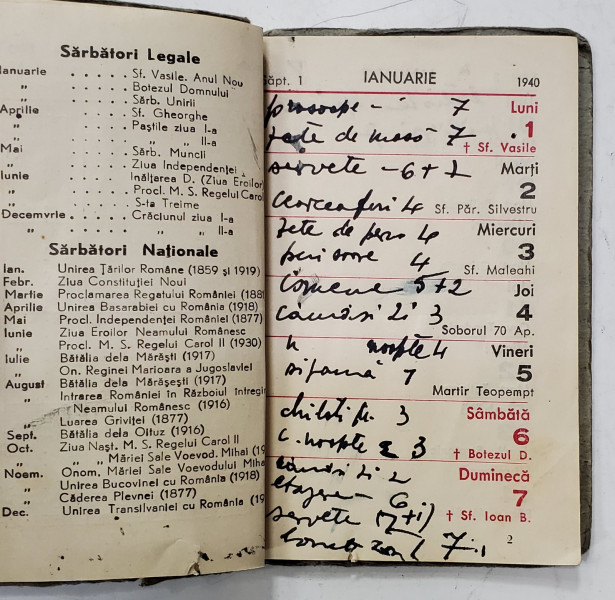 Sărbători Legale
Ianuarie . . . . . Sf. Vasile. Anul Nou
„ . . . . . Botezul Domnului
„ . . . . . Sărb. Unirii
Aprilie . . . . . Sf. Gheorghe
„ . . . . . Paștile ziua I-a
„ . . . . . „ „ II-a
Mai . . . . . Sărb. Muncii
„ . . . . . Ziua Independenței
Iunie . . . . . Inălțarea D. (Ziua Eroilor)
„ . . . . . Procl. M. S. Regelui Carol
„ . . . . . S-ta Treime
Decemvrie . . . . . Crăciunul ziua I-a
„ . . . . . „ „ II-a
Sărbători Naționale
Ian. Unirea Țărilor Române (1859 și 1919)
Febr. Ziua Constituției Noui
Martie Proclamarea Regatului României (1881
Aprilie Unirea Basarabiei cu România (1918)
Mai Procl. Independenței României (1877)
Iunie Ziua Eroilor Neamului Românesc
„ Procl. M. S. Regelui Carol II (1930)
Iulie Bătălia dela Mărăști (1917)
„ On. Reginei Marioara a Jugoslaviei
August Bătălia dela Mărășești (1917)
„ Intrarea României în Războiul întregir
Neamului Românesc (1916)
„ Luarea Griviței (1877)
Sept. Bătălia dela Oituz (1916)
Oct. Ziua Nașt. M. S. Regelui Carol II
„ „ „ Măriei Sale Voevod. Mihai (19
Noem. Onom. Măriei Sale Voevodului Miha
„ Unirea Bucovinei cu România (1918)
„ Căderea Plevnei (1877)
Dec. Unirea Transilvaniei cu România (19
Săpt. 1 IANUARIE 1940
prosoape - 7 Luni
fețe de masă 7 1
† Sf. Vasile
servete - 6+2 Marți
2
cearceafuri 4 Sf. Păr. Silvestru
fețe de perna 4 Miercuri
4 3
Sf. Maleahi
5+2 Joi
cămăsi zi 3 4
Soborul 70 Ap.
noapte 4 Vineri
7 5
Martir Teopempt
3 Sâmbătă
c. noapte 3 6
† Botezul D.
cămăsi zi 2 Duminecă
6 7
servete † Sf. Ioan B.
7
2